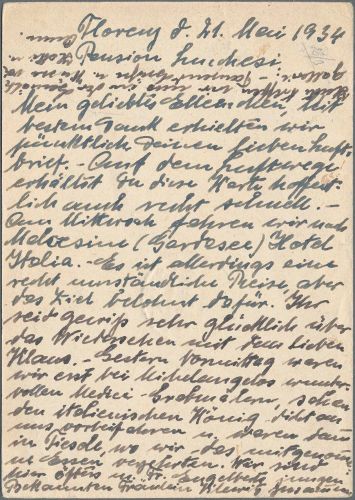 Florenz d. 21. Mai 1934
Pension Lucchesi
Mein geliebtes Ellenchen, mit
bestem Dank erhielten wir
pünktlich Deinen lieben Luft-
brief. - Auf dem Luftwege
erhältst Du diese Karte hoffent-
lich auch recht schnell. -
Am Mittwoch fahren wir nach
Malcesine (Gardasee) Hotel
Italia. - Es ist allerdings eine
recht umständliche Reise, aber
das Ziel belohnt dafür. Ihr
seid gewiß sehr glücklich über
das Wiedersehen mit dem lieben
Klaus. - Gestern Vormittag waren
wir erst bei Michelangelos wunder-
vollen Medici-Grabmälern, sahen
den italienischen König dicht an
uns vorbeifahren u. waren dann
in Fiesole, wo wir das mitgenom-
mene Essen verzehrten. Wir sind
hier öfters m.
Bekannten Fräulein